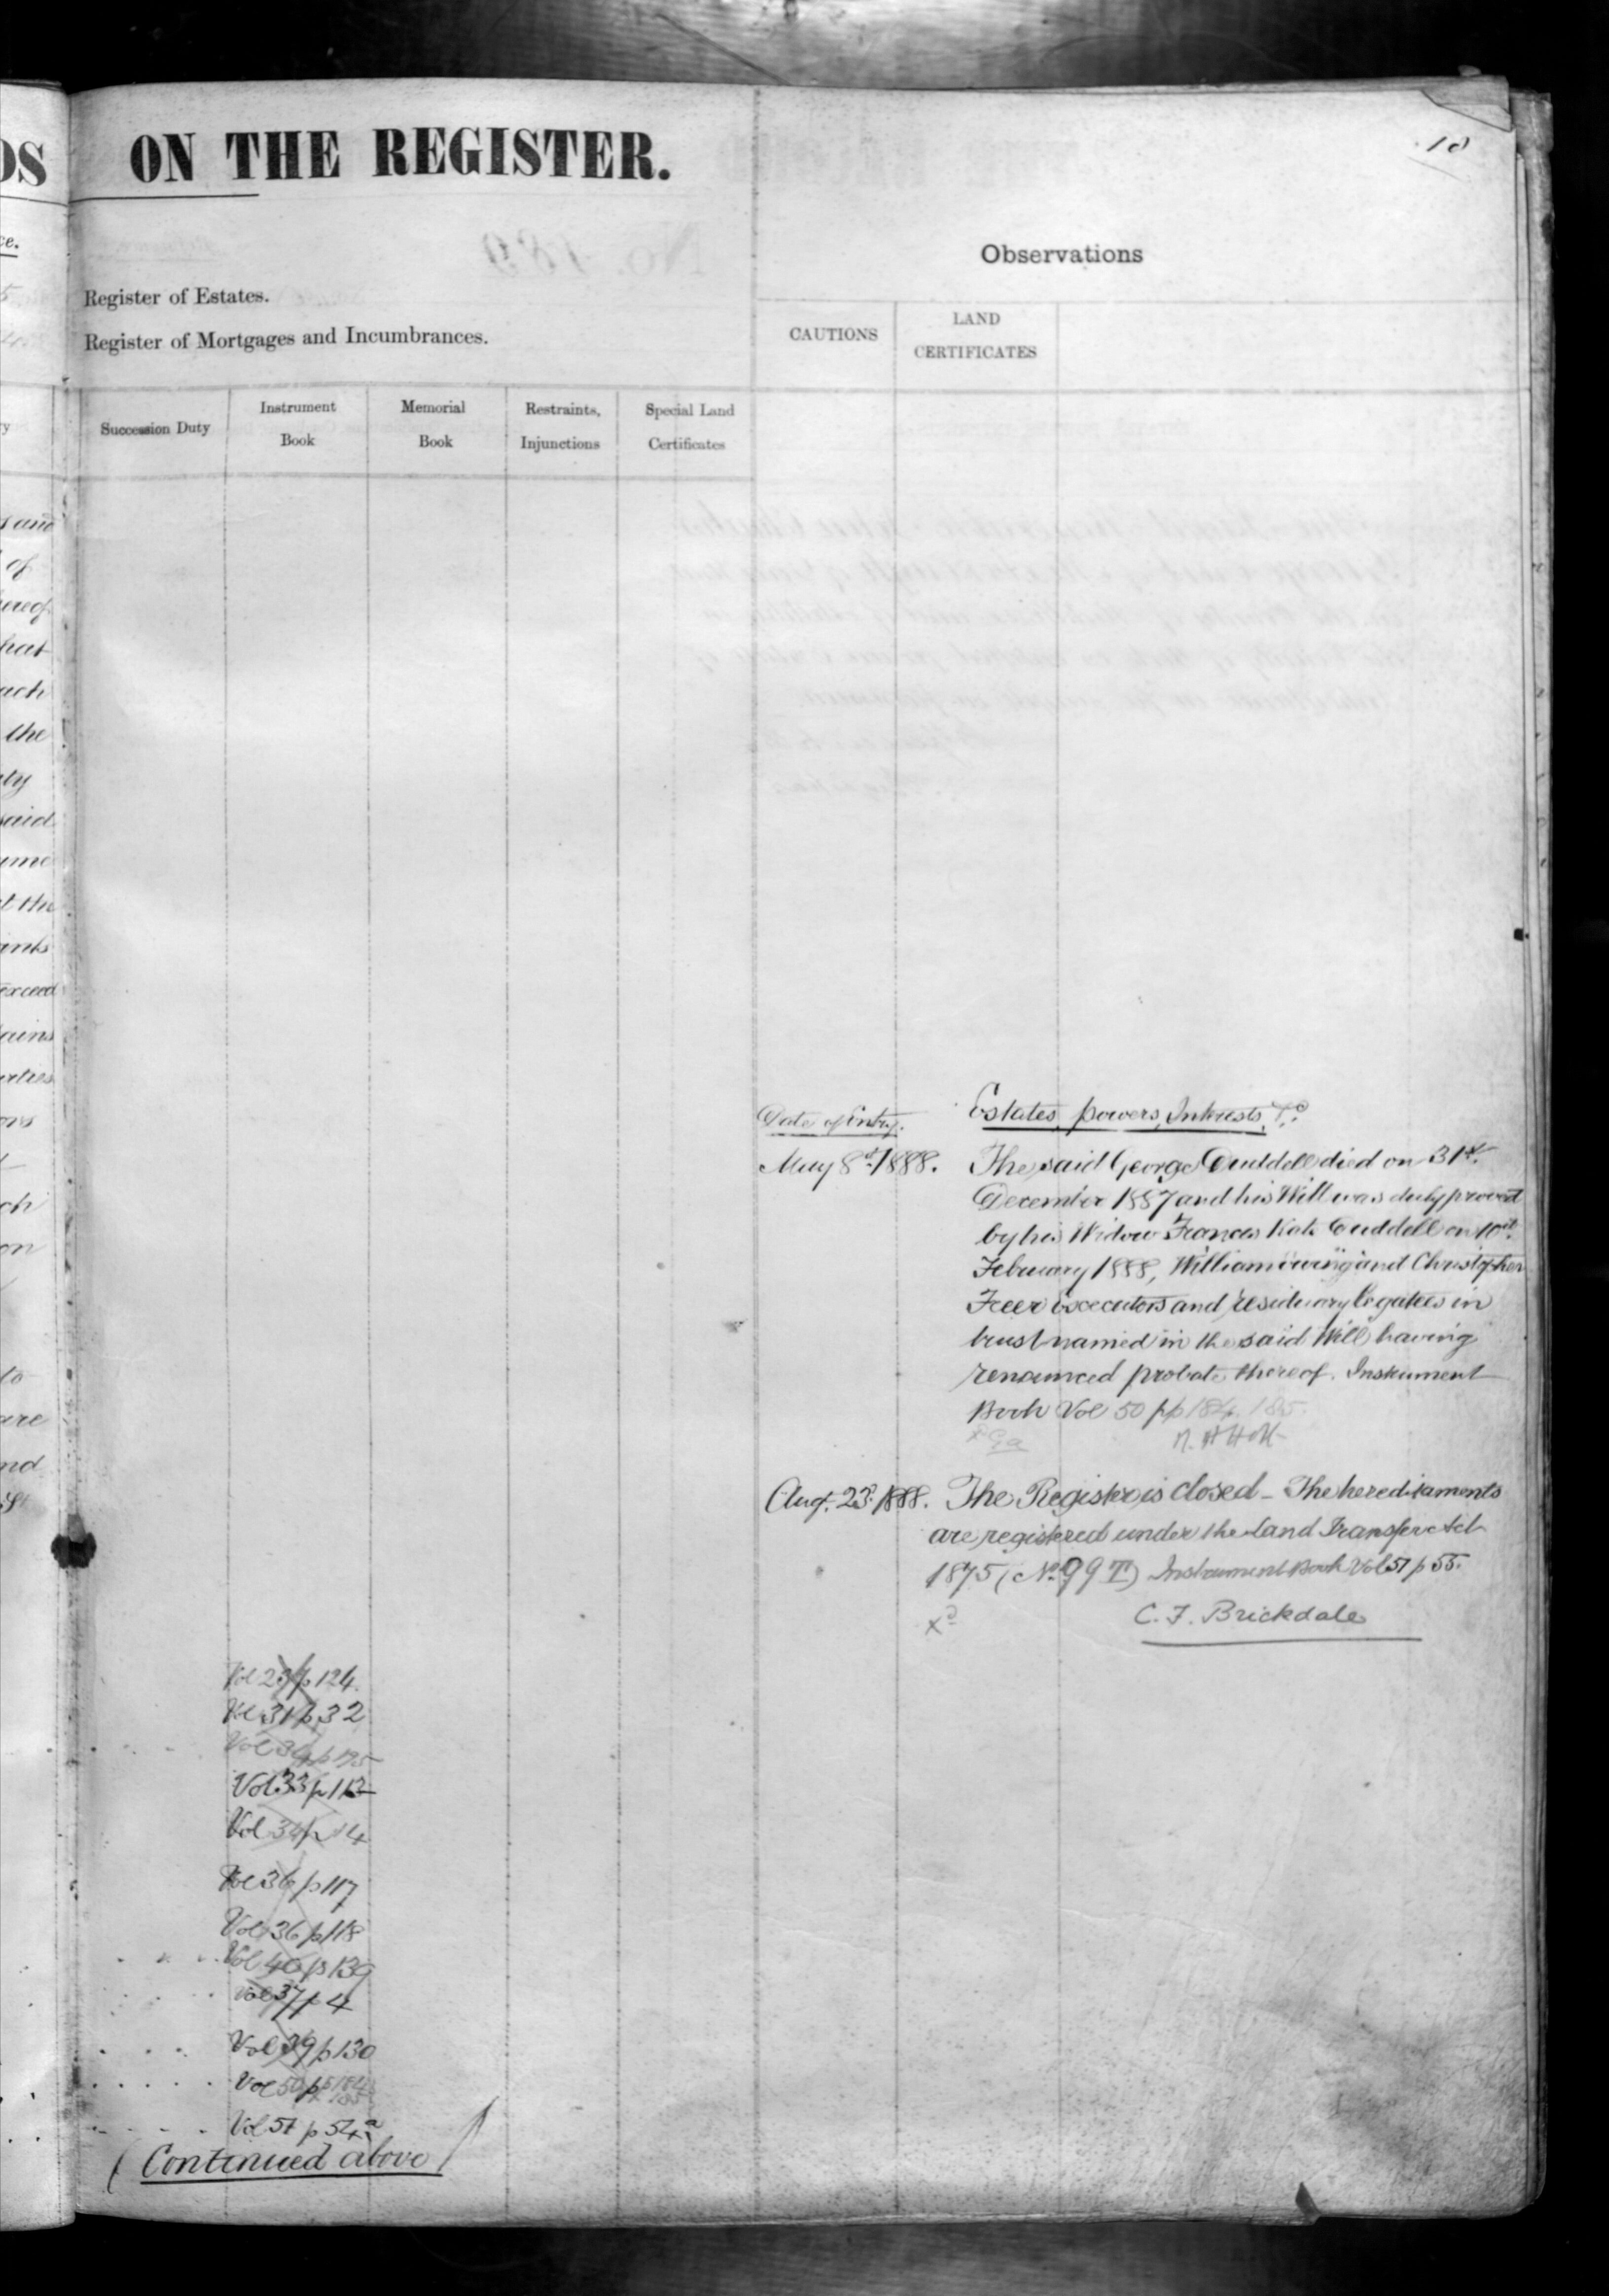 DS ON THE REGISTER.
18
ce.
Observations
Register of Estates.
Register of Mortgages and Incumbrances.
CAUTIONS
LAND
CERTIFICATES
Succession Duty
Instrument
Book
Memorial
Book
Restraints,
Injunctions
Special Land
Certificates
and
of
hereof
hat
ach
the
ty
said
ume
t the
ants
exceed
ains
ch
on
to
are
nd
Date of Entry.
Estates, powers, Interests, &c
May 8th 1888.
The said George Duddell died on 31st
December 1887 and his Will was duly proved
by his Widow Frances Kate Duddell on 10th
February 1888, William Ewing and Christopher
Freer Executors and residuary legatees in
trust named in the said Will having
renounced probate thereof. Instrument
Book Vol 50 pp 184. 185.
Aug. 23d 1888.
The Register is closed - The hereditaments
are registered under the Land Transfer Act
1875 (No. 99 T) Instrument Book Vol 51 p 55.
xd
C. F. Brickdale
Vol 23 p 124.
Vol 31 p 32
Vol 33 p 112
Vol 34 p 14
Vol 36 p 117
Vol 36 p 118
Vol 40 p 139
Vol 37 p 4
Vol 39 p 130
Vol 50 pp 184
185
Vol 51 p 54a
(Continued above)